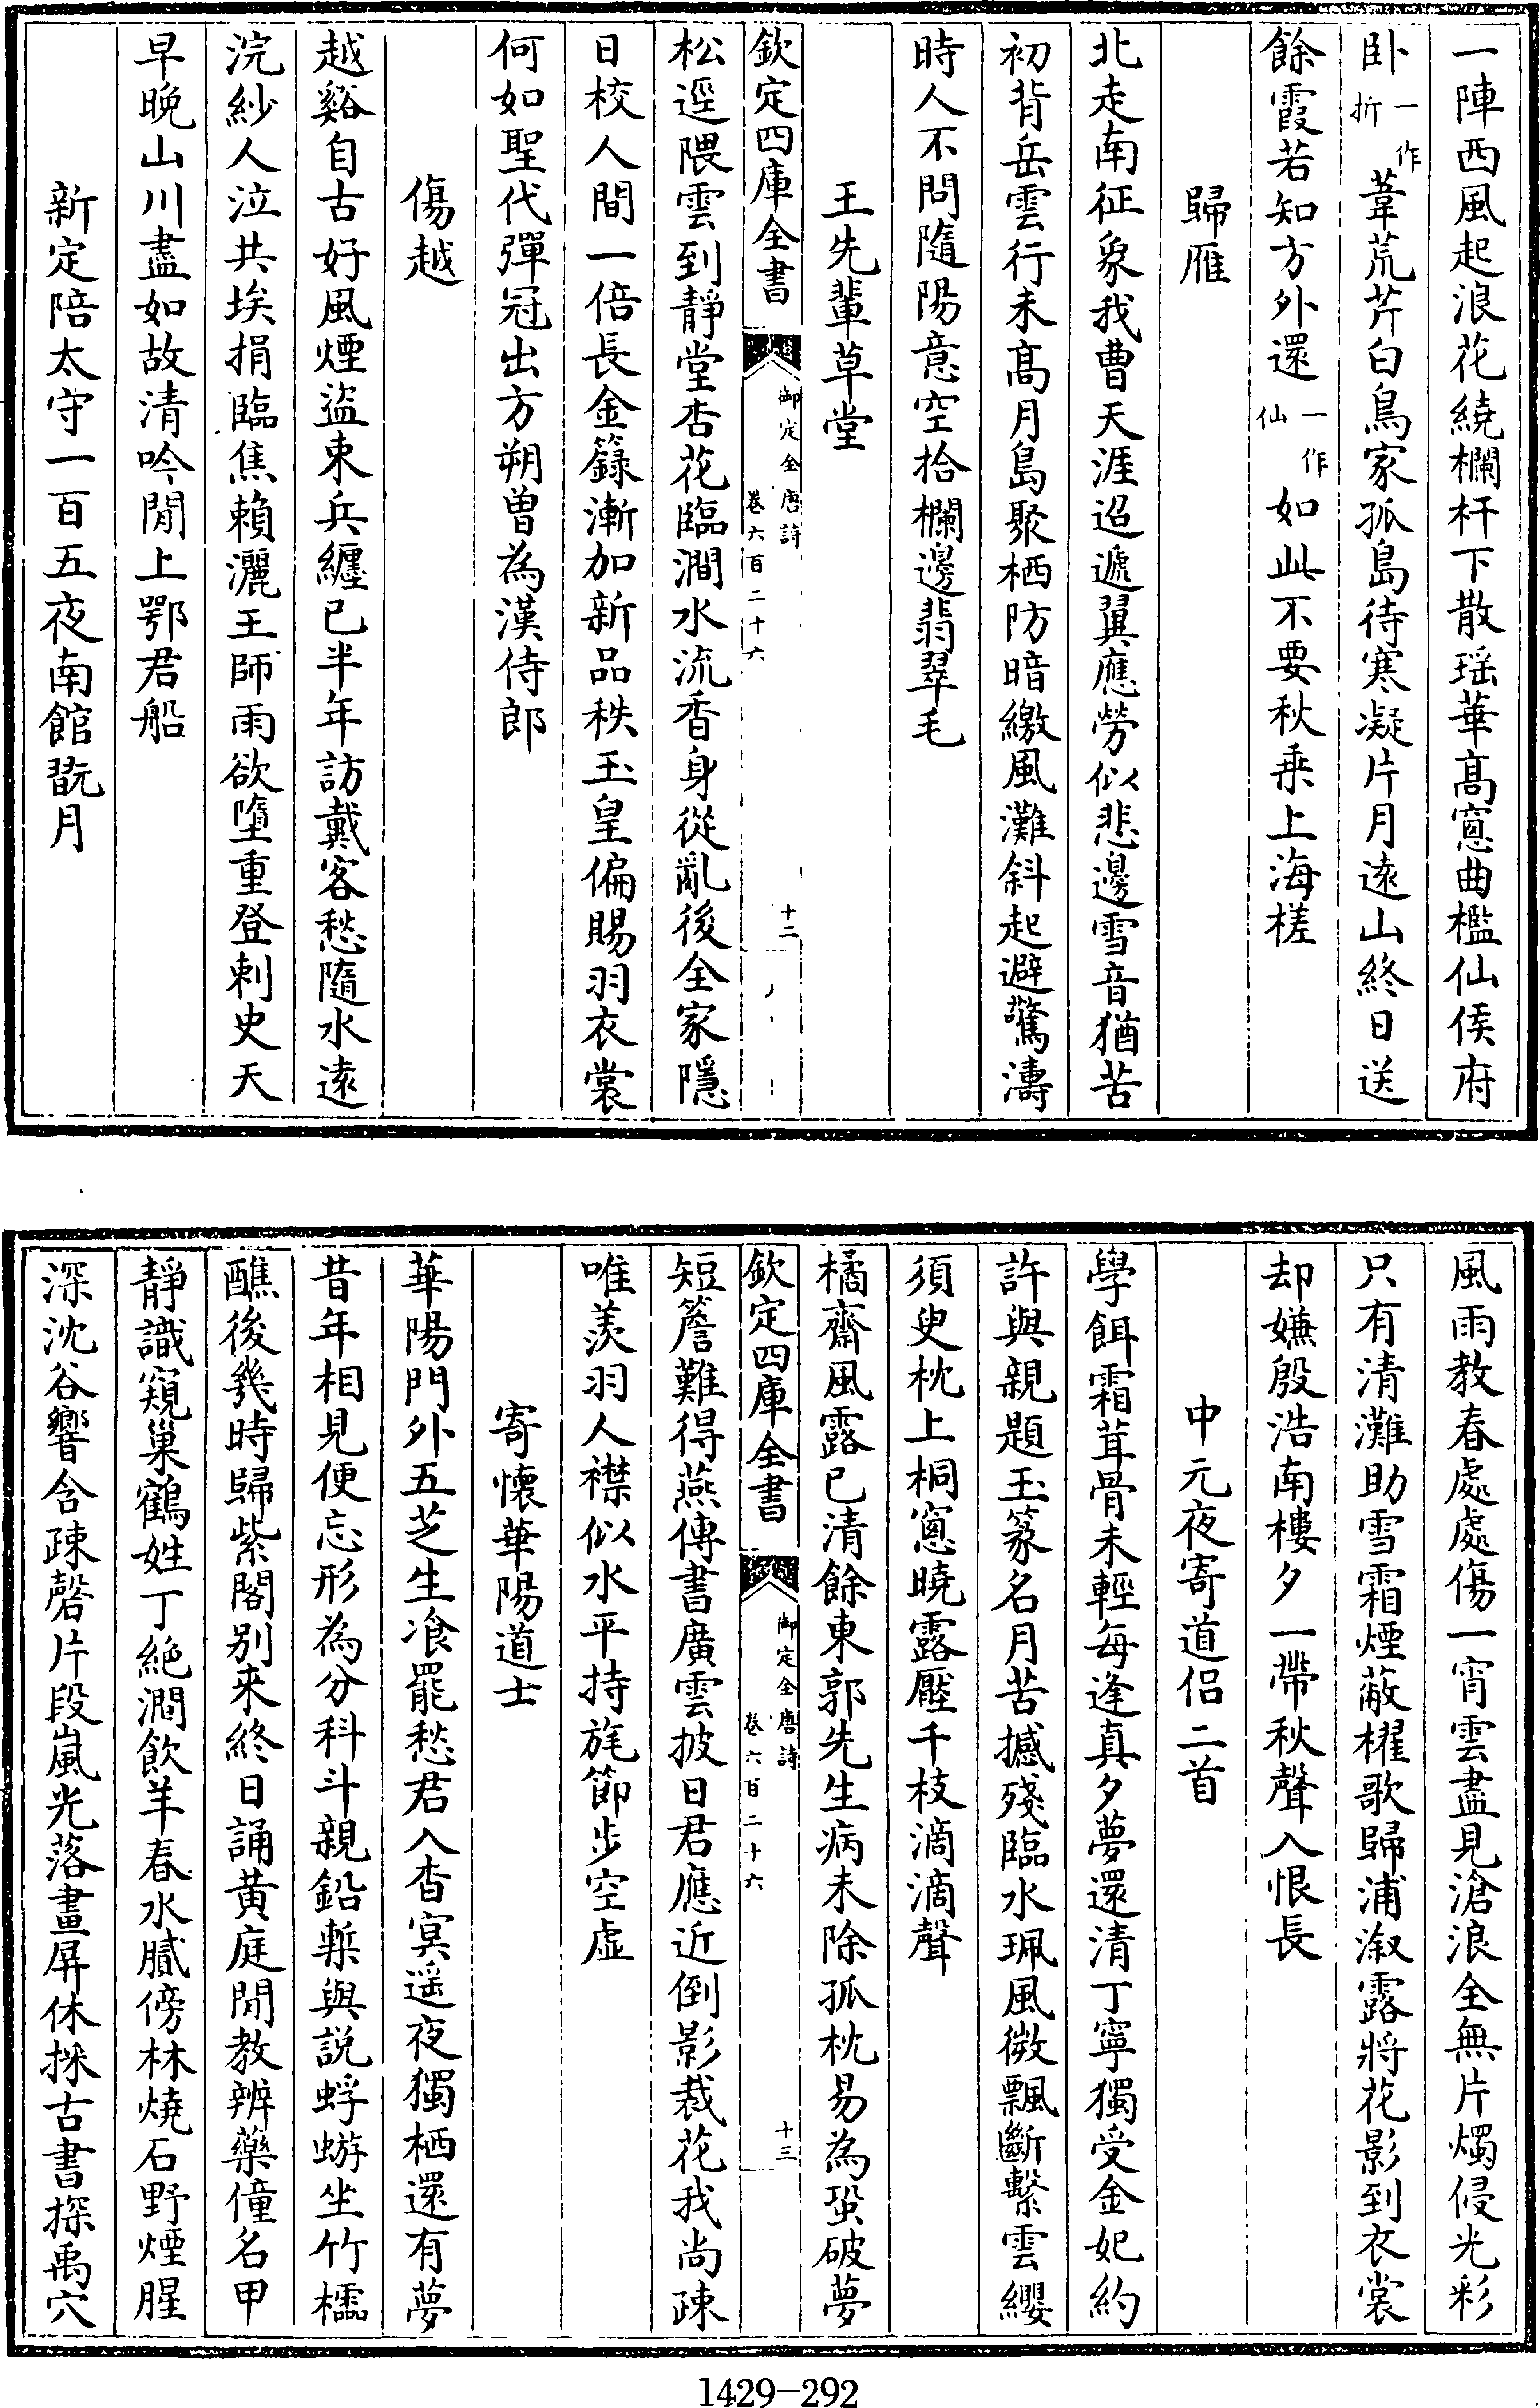 一陣西風起浪花繞欄杆下散瑤華高窓曲檻仙侯府
卧一作折葦荒芹白鳥家孤島待寒凝片月逺山終日送
餘霞若知方外還一作仙如此不要秋乘上海槎
歸雁
北走南征象我曹天涯迢遞翼應勞似悲邊雪音猶苦
初背岳雲行未高月島聚栖防暗繳風灘斜起避驚濤
時人不問隨陽意空拾欄邊翡翠毛
王先輩草堂
欽定四庫全書
御定全唐詩
卷六百二十六
十二
松逕隈雲到靜堂杏花臨澗水流香身從亂後全家隱
日校人間一倍長金籙漸加新品秩玉皇偏賜羽衣裳
何如聖代彈冠出方朔曽為漢侍郎
傷越
越谿自古好風煙盜束兵纏已半年訪戴客愁隨水逺
浣紗人泣共埃捐臨焦賴灑王師雨欲墮重登刺史天
早晚山川盡如故清吟閒上鄂君船
新定陪太守一百五夜南館翫月
風雨教春處處傷一宵雲盡見滄浪全無片燭侵光彩
只有清灘助雪霜煙蔽櫂歌歸浦溆露將花影到衣裳
却嫌殷浩南樓夕一帶秋聲入恨長
中元夜寄道侶二首
學餌霜茸骨未輕每逢真夕夢還清丁寧獨受金妃約
許與親題玉篆名月苦撼殘臨水珮風微飄斷繫雲纓
須臾枕上桐窓曉露壓千枝滴滴聲
橘齋風露已清餘東郭先生病未除孤枕易為蛩破夢
欽定四庫全書
御定全唐詩
卷六百二十六
十三
短簷難得燕傳書廣雲披日君應近倒影裁花我尚疎
唯羨羽人襟似水平持旄節步空虛
寄懷華陽道士
華陽門外五芝生飡罷愁君入杳冥遥夜獨栖還有夢
昔年相見便忘形為分科斗親鉛槧與説蜉蝣坐竹欞
醮後幾時歸紫閣別來終日誦黄庭閒教辨藥僮名甲
靜識窺巢鶴姓丁絶澗飲羊春水膩傍林燒石野煙腥
深沈谷響含疎磬片段嵐光落畫屏休採古書探禹穴
1429-292